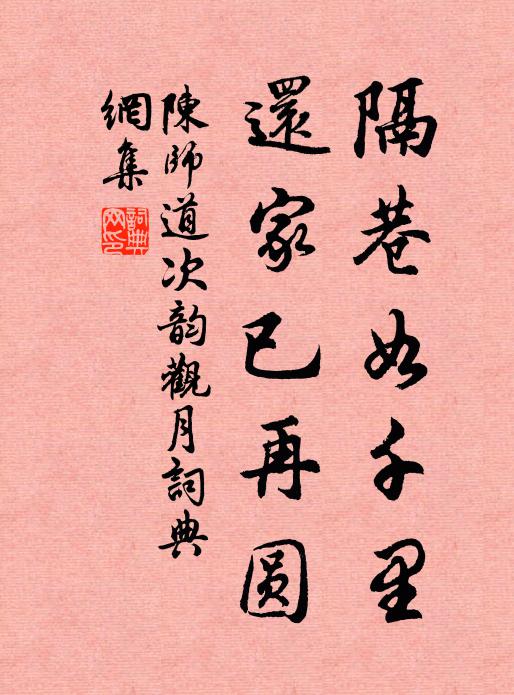 隔巷如千里
還家已再圆
陳師道次韵觀月詞典
網集
詞典网印